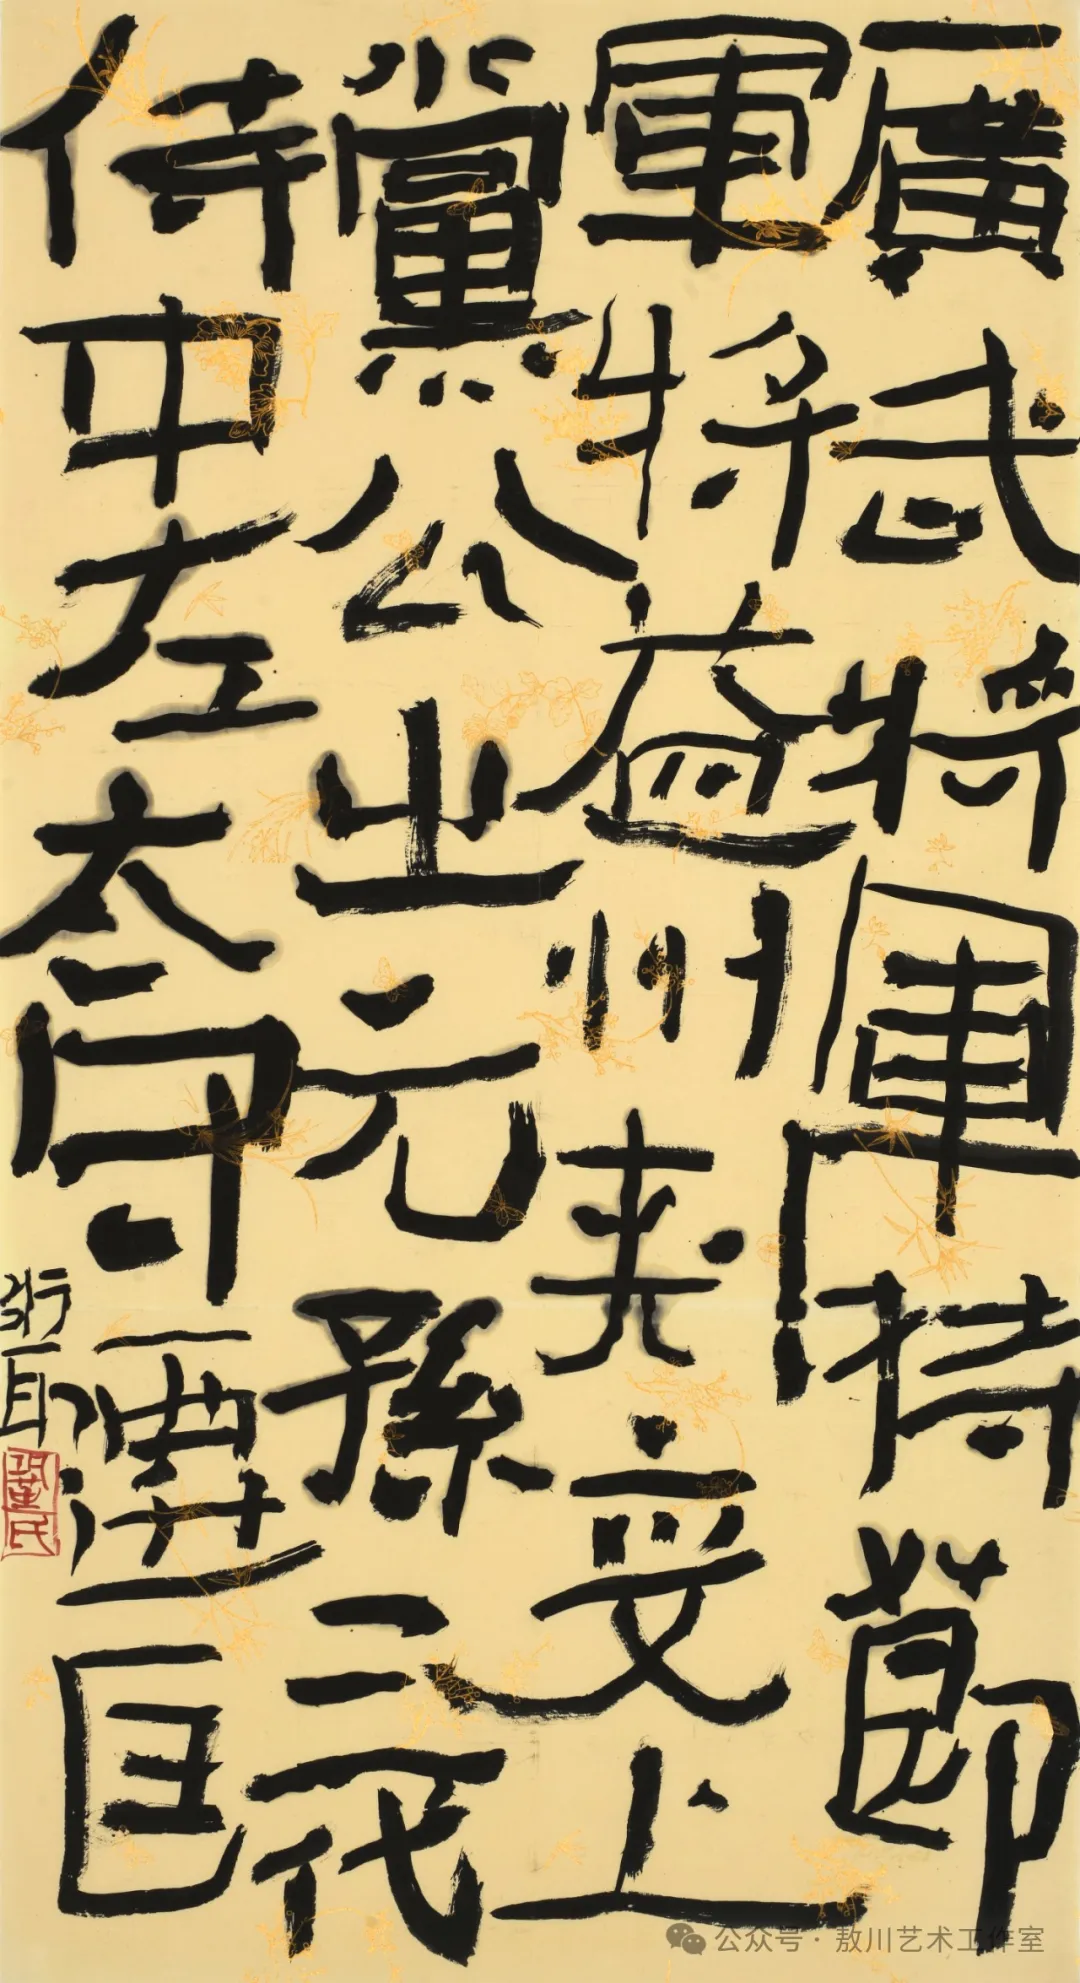 廣武將軍持節
軍將益州刺史上
黨公之元孫三代
侍中左太守遷臣
公众号·敖川艺术工作室